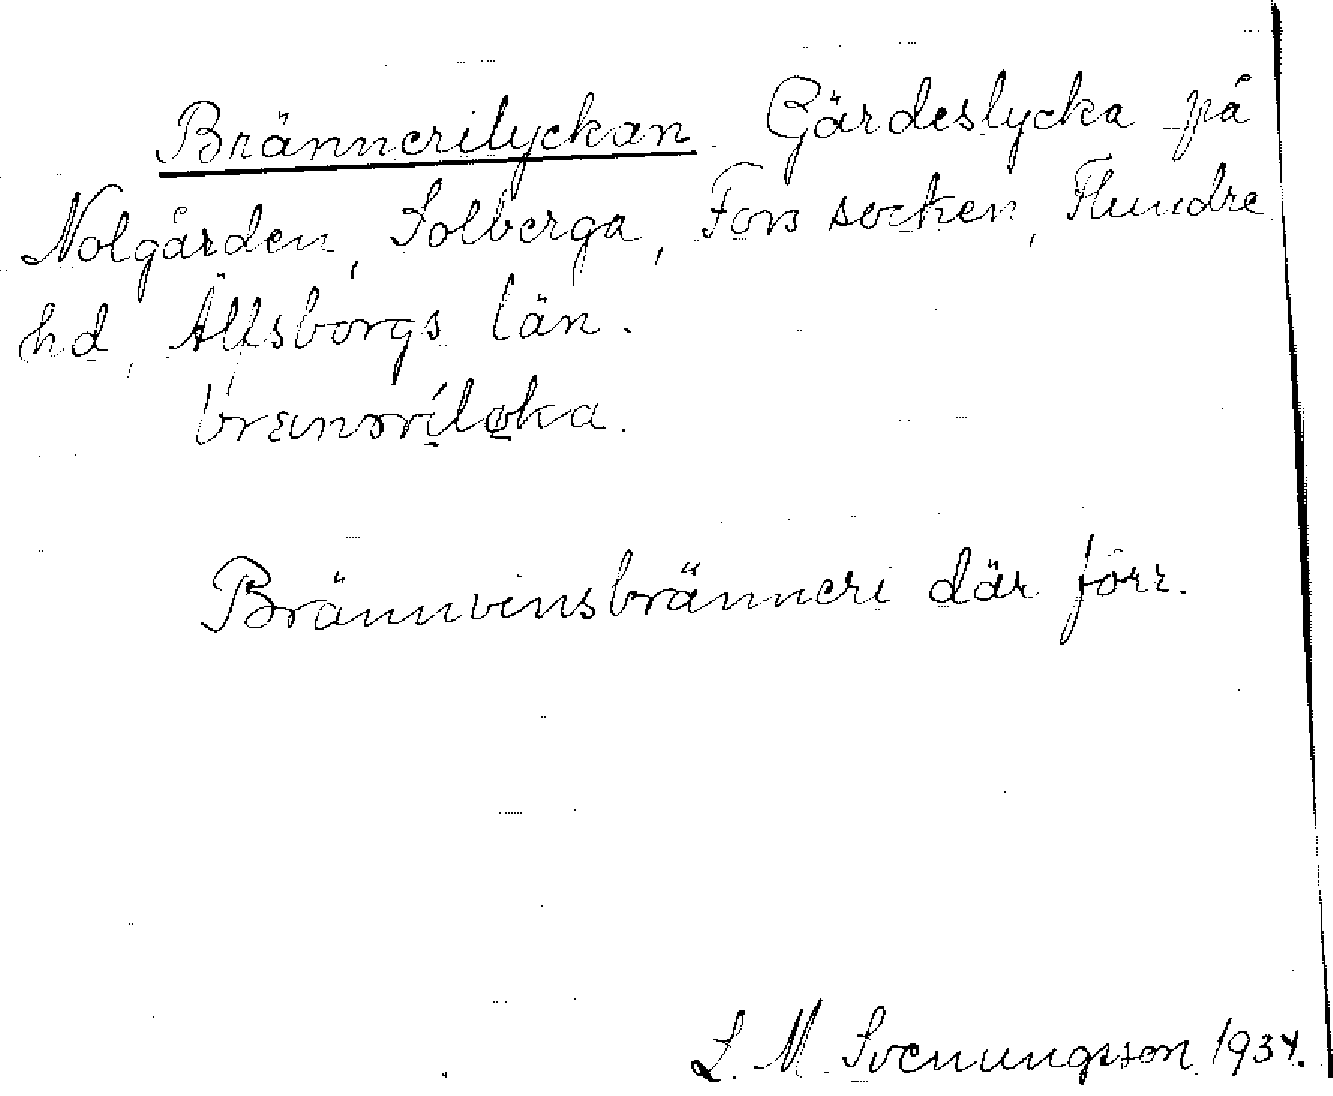 Brännerilyckan Gärdeslycka på
Nolgården, Solberga, Fors socken, Flundre
hd, Älfsborgs län.
Brännvinsbränneri där förr.
L. M. Svenungsson 1934.